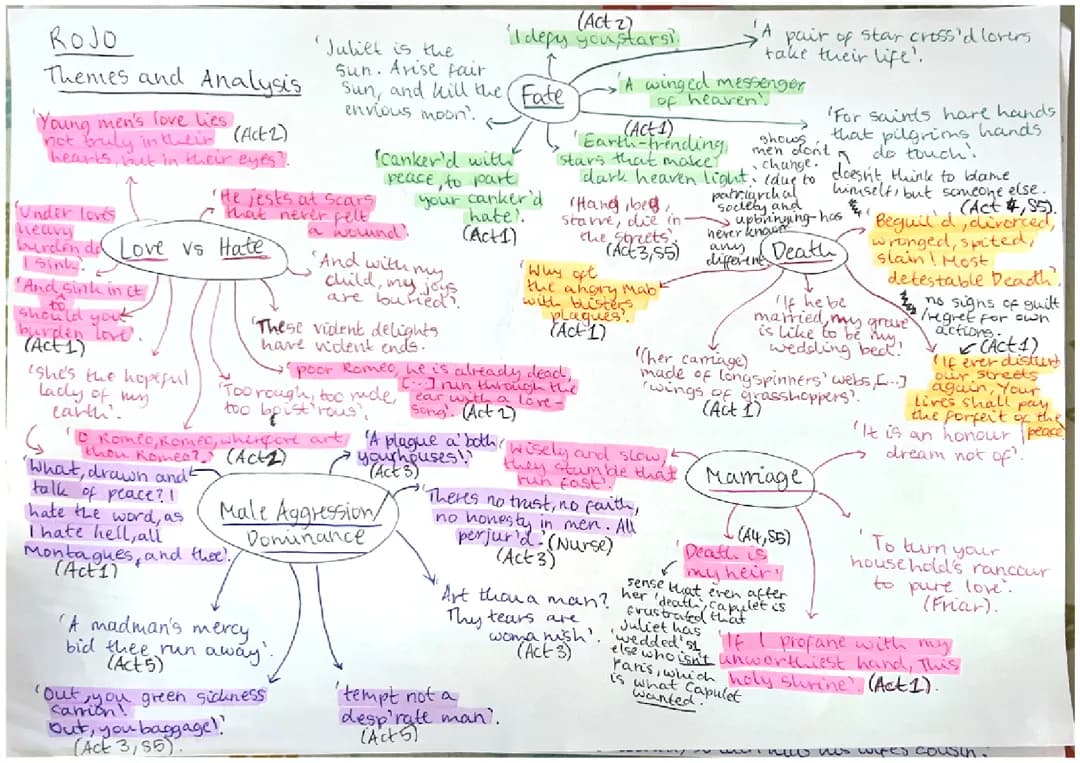 ROJO
Themes and Analysis
'Juliet is the
sun. Arise fair
sun, and kill the
envious moon'.
(Act 2)
'I defy you, stars!'
'A pair of star cross'd lovers
take their life'.
Fate
'A winged messenger
of heaven'.
'For saints have hands
that pilgrims hands
do touch'.
(Act 1)
'Earth-trending
stars that make
dark heaven light'.
'Canker'd with
peace, to part
your canker'd
hate'.
(Act1)
'Young men's love lies
not truly in their
hearts, but in their eyes'.
(Act2)
'He jests at scars
that never felt
a wound'.
'Under love's
heavy
burden do
I sink'.
Love vs Hate
'And, sink in it
to
should you
burden love'.
(Act1)
'And with my
child, my joys
are buried'.
'These violent delights
have violent ends.
'She's the hopeful
lady of my
earth'.
'Too rough, too rude,
too boist'rous'.
'poor Romeo, he is already dead,
[...] run through the
ear with a love-
song'. (Act 2)
'O Romeo, Romeo, wherefore art
thou Romeo?'.
shows
men don't
change.
(due to
patriarchal
society and
upbringing - has
never known
any
different)
doesn't think to blame
himself, but someone else.
(Act 4, S5)
'Hang, beg,
starve, die in
the streets'.
(Act3, S5)
Death
'Beguil'd, divorced,
wronged, spited,
slain! Most
detestable Deadth'.
no signs of guilt
/regret for own
actions.
(Act1)
'If ever disturb
our streets
again, Your
lives shall pay
the forfeit of the
peace'
'Why oft
the angry Mab
with blisters
plagues'.
(Act1)
'If he be
married, my grave
is like to be my
wedding bed'.
'(her carriage)
made of longspinners' webs, [...]
'wings of grasshoppers'.
(Act 1)
Male Aggression/
Dominance
'What, drawn and
talk of peace?!
hate the word, as
I hate hell, all
Montagues, and thee'.
(Act1)
'A plague a' both
your houses!'
(Act3)
'Theres no trust, no faith,
no honesty in men. All
perjur'd'. (Nurse)
(Act3)
Art thou a man?
Thy tears are
womanish'.
(Act3)
'A madman's mercy
bid thee run away'.
(Act5)
'Out, you green sickness
carrion!
Out, you baggage!'
(Act 3, S5).
'tempt not a
desp'rate man'.
(Act5)
Marriage
'Wisely and slow,
they stumble that
run fast'.
'It is an honour I
dream not of'.
'To turn your
household's rancour
to pure love'.
(Friar).
(A4, S5)
'Death is
my heir'
sense that even after
her 'death', Capulet is
frustrated that
Juliet has
'wedded' s1
else who isn't
Paris, which
is what Capulet
wanted.
'If I profane with my
unworthiest hand, This
holy shrine'. (Act1).
his wife's cousin.